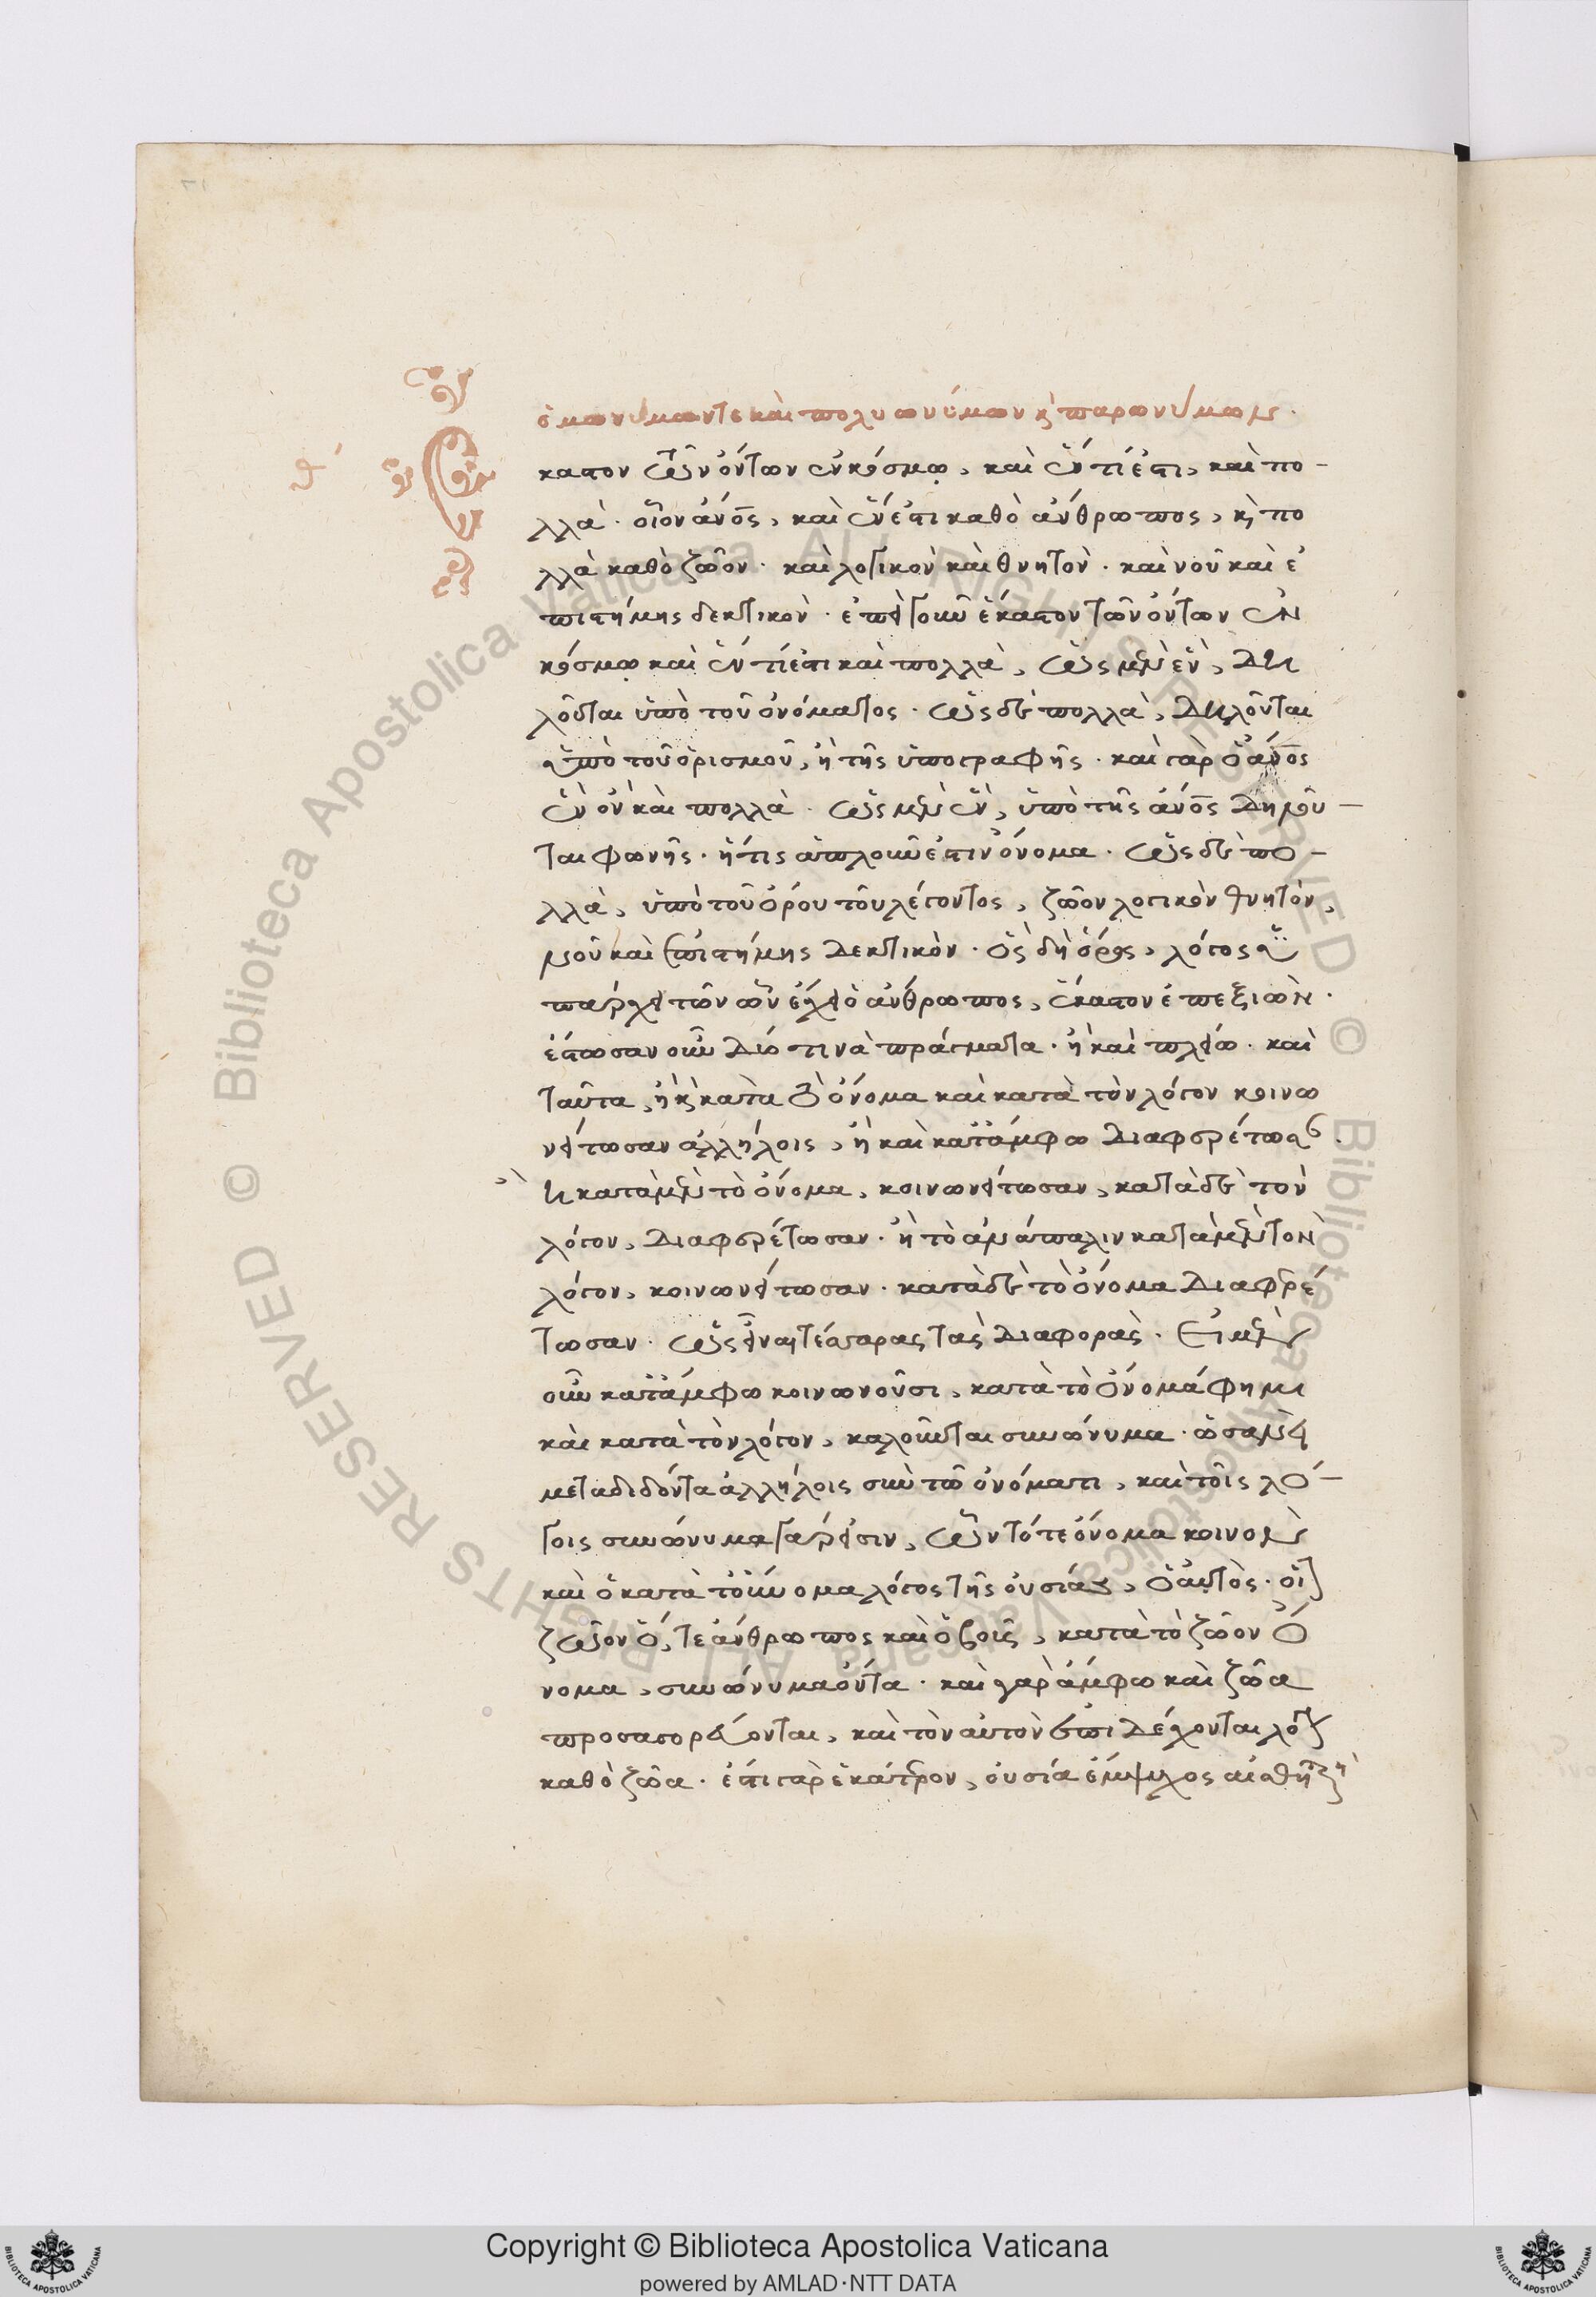 ὁμωνύμων τε καὶ πολυωνύμων κ παρωνύμων.
θʹ
Ἕκαστον τῶν ὄντων ἐν κόσμῳ, καὶ ἕν τί ἐστι, καὶ πο-
λλά. οἷον ἄνος, καὶ ἕν ἐστι καθὸ ἄνθρωπος, κ πο
λλὰ καθὸ ζῶον. καὶ λογικὸν καὶ θνητὸν. καὶ νοῦ καὶ ἐ
πιστήμης δεκτικὸν. ἐπεὶ γοῦν ἕκαστον τῶν ὄντων ἐν
κόσμῳ καὶ ἕν τί ἐστι καὶ πολλὰ, ὡς μὲν ἓν, δη
λοῦται ὑπὸ τοῦ ὀνόματος. ὡς δὲ πολλὰ, δηλοῦται
ὑπὸ τοῦ ὁρισμοῦ, ἢ τῆς ὑπογραφῆς. καὶ γὰρ ὁ ἄνος
ἓν ὂν καὶ πολλὰ. ὡς μὲν ἓν, ὑπὸ τῆς ἄνος δηλοῦ-
ται φωνῆς. ἥτις ἁπλοῦν ἐστιν ὄνομα. ὡς δὲ πο-
λλὰ, ὑπὸ τοῦ ὅρου τοῦ λέγοντος, ζῶον λογικὸν θνητὸν,
νοῦ καὶ ἐπιστήμης δεκτικὸν. ὃς δὴ ὅρος, λόγος ὑ
πάρχει τῶν ὧν ἔχει ὁ ἄνθρωπος, ἕκαστον ἐπεξιών.
ἔστωσαν οὖν δύο τινὰ πράγματα. ἢ καὶ πλείω. καὶ
ταῦτα, ἢ κ κατὰ τὸ ὄνομα καὶ κατὰ τὸν λόγον κοινω
νείτωσαν ἀλλήλοις, ἢ καὶ κατ' ἄμφω διαφερέτωσαν.
ἢ κατὰ μὲν τὸ ὄνομα, κοινωνείτωσαν, κατὰ δὲ τὸν
λόγον, διαφερέτωσαν. ἢ τὸ ἀνάπαλιν κατὰ μὲν τὸν
λόγον, κοινωνείτωσαν. κατὰ δὲ τὸ ὄνομα διαφερέ
τωσαν. ὡς εἶναι τέσσαρας τὰς διαφορὰς. Εἰ μὲν
οὖν κατ' ἄμφω κοινωνοῦσι, κατὰ τὸ ὄνομά φημι
καὶ κατὰ τὸν λόγον, καλοῦνται συνώνυμα. ὡσανεὶ
μεταδιδόντα ἀλλήλοις σὺν τῶ ὀνόματι, καὶ τοῖς λό-
γοις συνώνυμα γάρ εἰσιν, ὧν τό τε ὄνομα κοινὸν
καὶ ὁ κατὰ τοὔνομα λόγος τῆς οὐσίας, ὁ αὐτὸς. οἷον
ζῶον ὅ, τε ἄνθρωπος καὶ ὁ βοῦς, κατὰ τὸ ζῶον ὄ
νομα, συνώνυμα ὄντα. καὶ γὰρ ἄμφω καὶ ζῶα
προσαγορεύονται, καὶ τὸν αὐτὸν ἐπιδέχονται λόγον
καθὸ ζῶα. ἔστι γὰρ ἑκάτερον, οὐσία ἔμψυχος αἰσθητικὴ
Copyright © Biblioteca Apostolica Vaticana
powered by AMLAD·NTT DATA